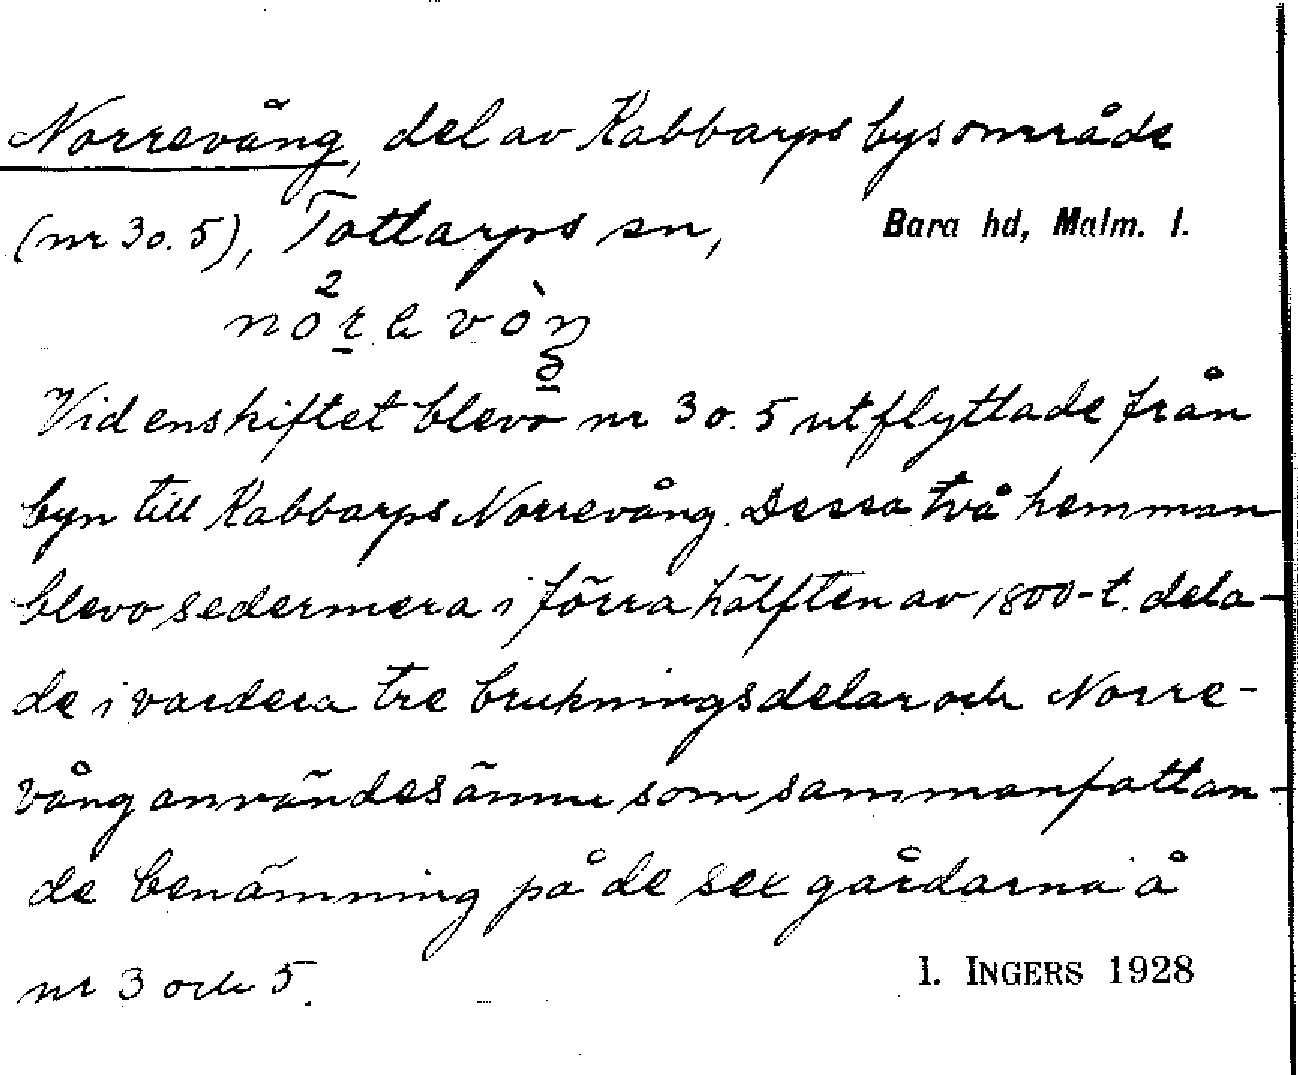 Norrevång, del av Kabbarps bysområde
(nr 3 o. 5), Tottarps sn, Bara hd, Malm. l.
Vid enskiftet blevo nr 3 o. 5 utflyttade från
byn till Kabbarps Norrevång. Dessa två hemman
blevo sedermera i förra hälften av 1800-t. dela-
de i vardera tre brukningsdelar och Norre-
vång användes ännu som sammanfattan-
de benämning på de sex gårdarna å
nr 3 och 5. I. INGERS 1928